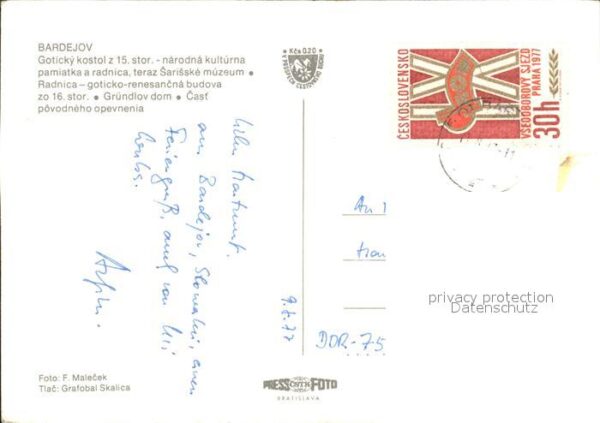 BARDEJOV
Gotický kostol z 15. stor. - národná kultúrna
pamiatka a radnica, teraz Šarišské múzeum •
Radnica – goticko-renesančná budova
zo 16. stor. • Gründlov dom • Časť
pôvodného opevnenia
Kčs 0,20
ČESKOSLOVENSKO
VŠEODBOROVÝ SJEZD
PRAHA 1977
30h
aus Bardejov, Slowakei, einen
Feriengruß, auch von
9.7.77
An
DDR-75
privacy protection
Datenschutz
Foto: F. Maleček
Tlač: Grafobal Skalica
PRESSFOTO
BRATISLAVA